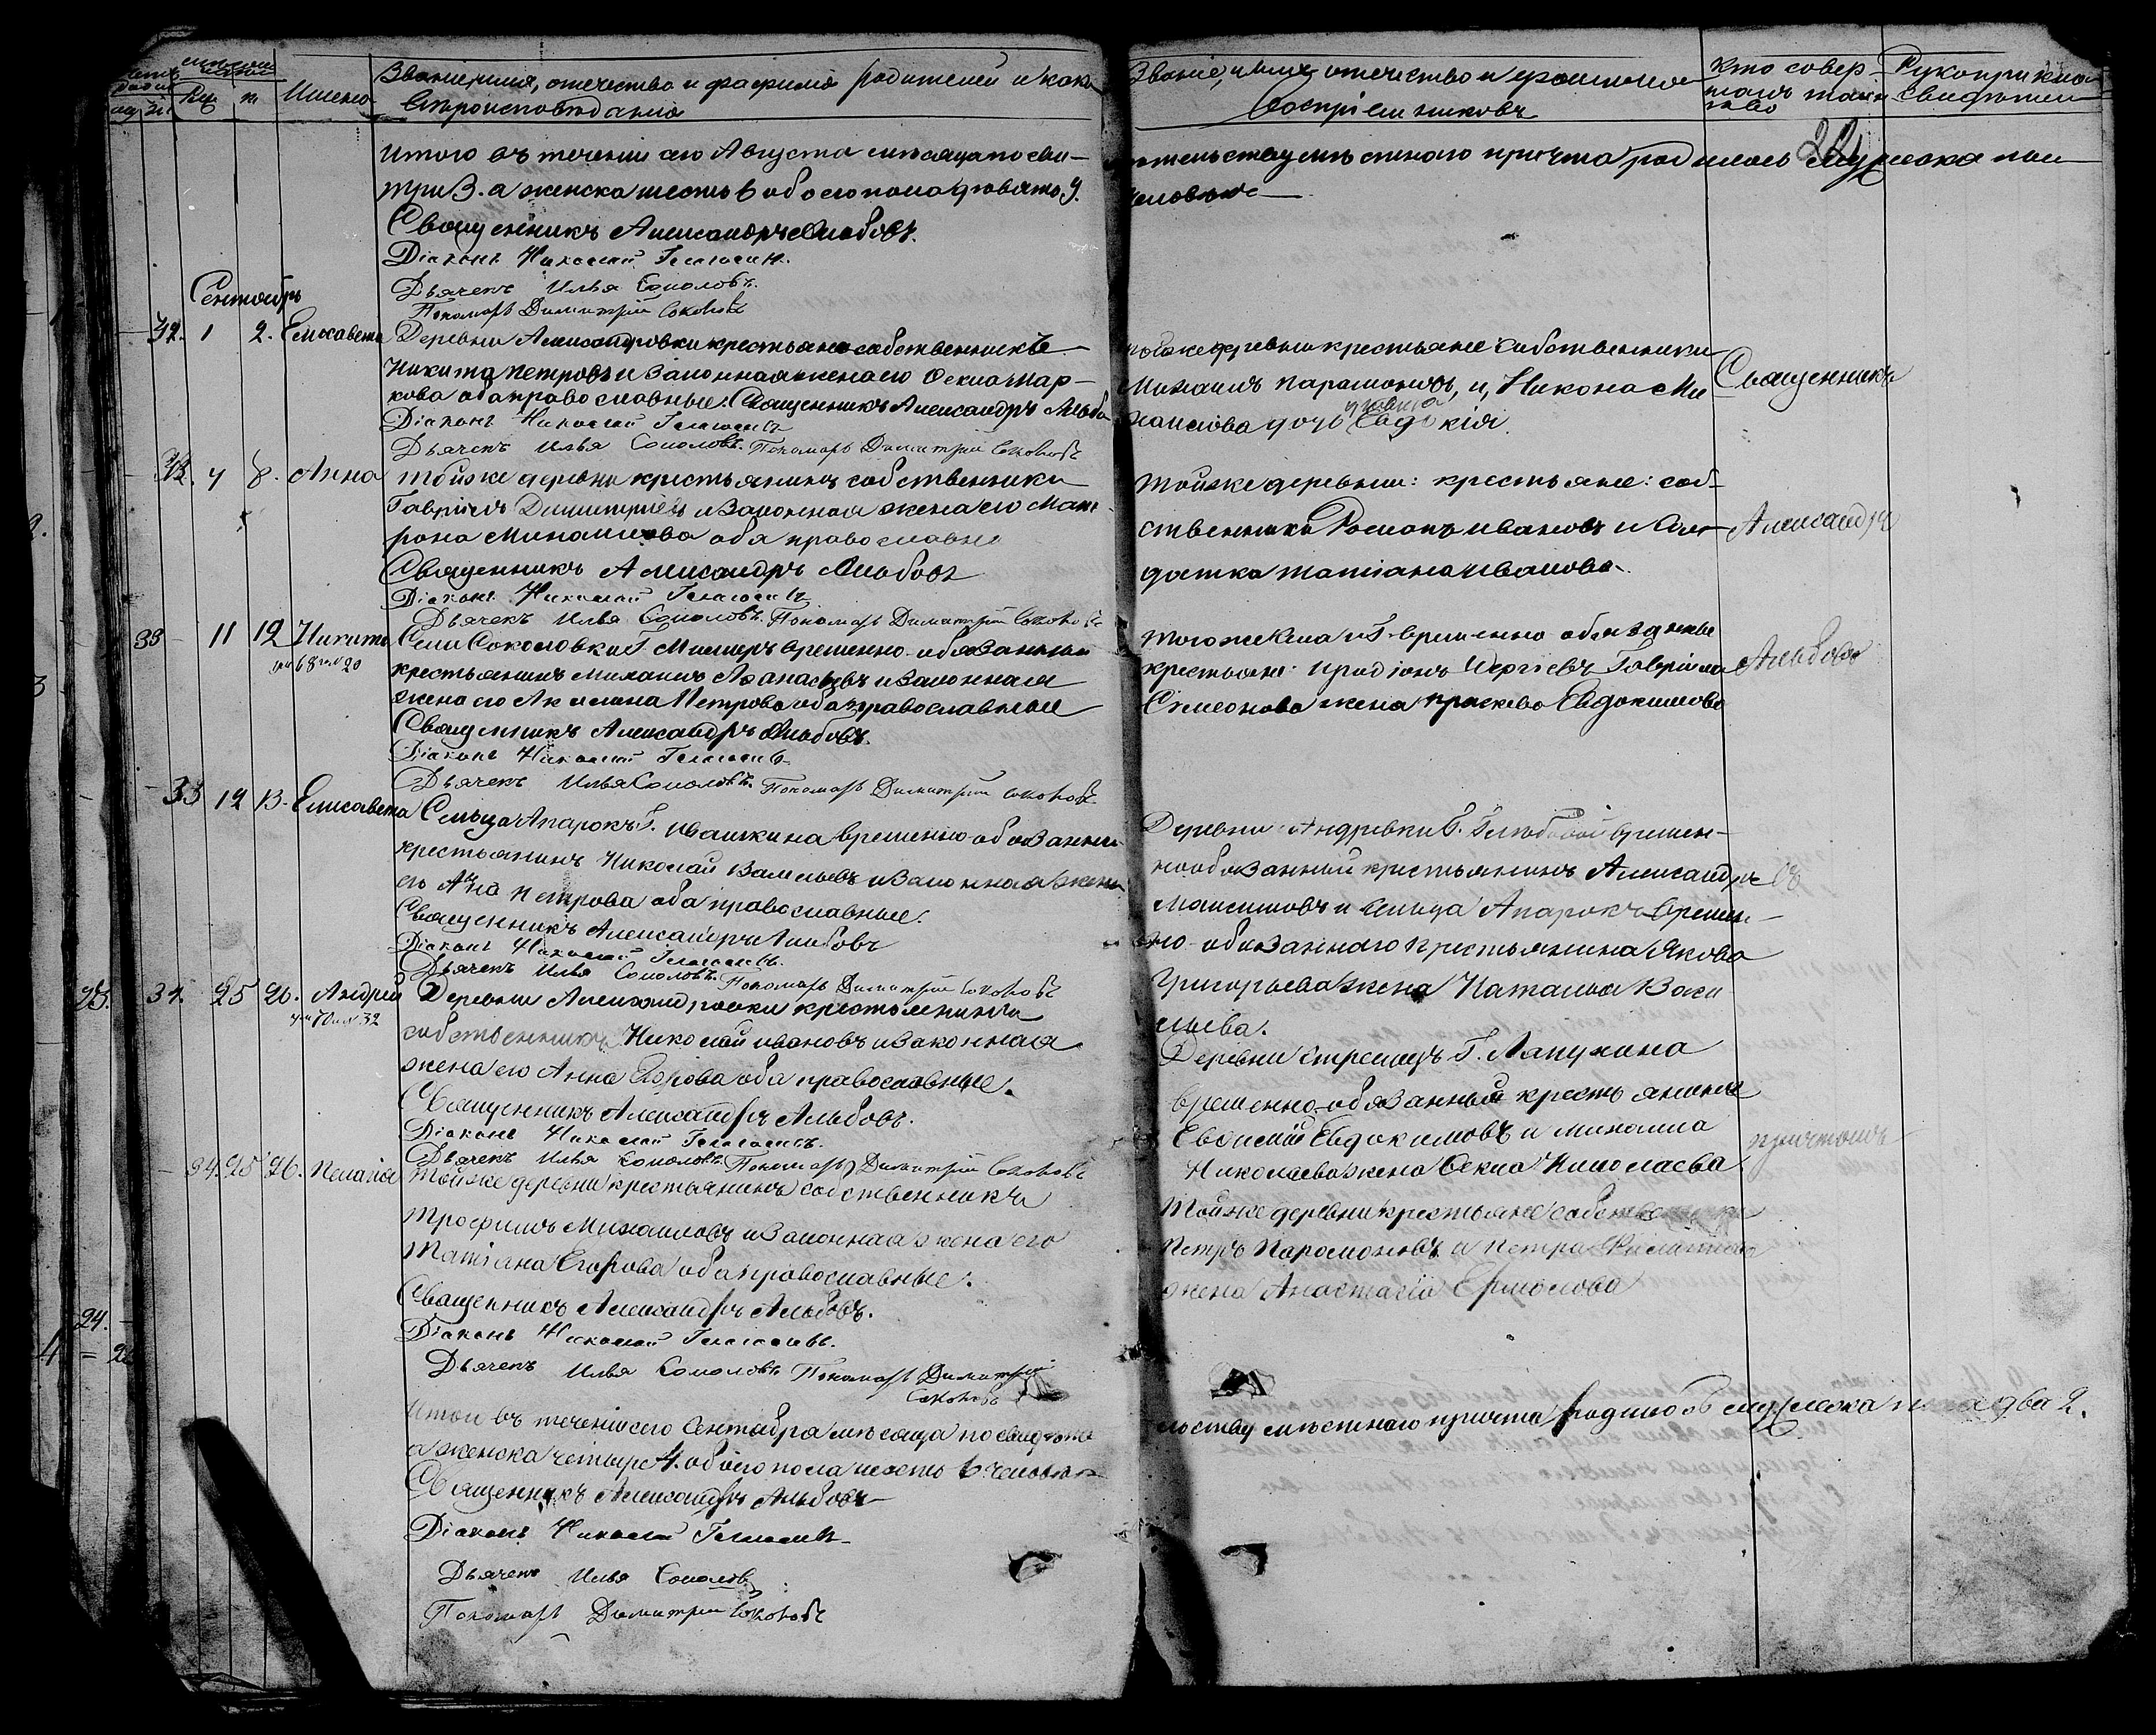 Имена
Званіе, имя, отечество и фамилія родителей и кака
вѣроисповѣданія
Званіе, имя, отечество и фамилія
Воспріемниковъ
Кто совер-
шалъ таин
ство
Рукоприклад
свидѣтел
22
Итого въ теченіи сего Августа мѣсяца по сви-
три 3. а женска шесть 6 обоего пола девять 9.
дѣтельству мѣстнаго причта родилось мужска пол
человѣкъ
Священникъ Александръ Альбовъ.
Діаконъ Николай
Дьячекъ Илья Соколовъ.
Пономарь Димитрій Соколовъ
Сентябрь
32. 1 2. Елисавета
Деревни Александровки крестьянъ собственникъ
Никита Петровъ и Законная жена его Ѳекла Мар-
кова оба православные. Священникъ Александръ Альбо
Діаконъ Николай
Дьячекъ Илья Соколовъ. Пономарь Димитрій Соколовъ
тойже деревни крестьяне собственники
Михаилъ Парамоновъ, и, Никона Ми
хаилова дочь девица Евдокія.
Священникъ
7 8. Анна
тойже деревни крестьянинъ собственникъ
Гавріилъ Димитріевъ и Законная жена его Мат
рона Михаилова оба православные
Священникъ Александръ Альбовъ
Діаконъ Николай
Дьячекъ Илья Соколовъ. Пономарь Димитрій Соколовъ
тойже деревни: крестьяне: соб-
ственники Романъ Ивановъ и Сол-
датка Татіана Иванова.
Александръ
33 11 12 Никита
Села Соколовки Г. Миллеръ временно-обязанный
крестьянинъ Михаилъ Аѳанасьевъ и Законная
жена его Акилина Петрова оба православные
Священникъ Александръ Альбовъ.
Діаконъ Николай
Дьячекъ Илья Соколовъ. Пономарь Димитрій Соколовъ
тогоже села и Г. временно обязанные
крестьяне: Иродіонъ Сергіевъ Гавріила
Симеонова жена Праскева Евдокимова
Альбовъ
33 12 13. Елисавета
Сельца Апарокъ Г. Ивашкина временно-обязанный
крестьянинъ Николай Васильевъ и Законная жена
его Анна Петрова оба православные.
Священникъ Александръ Альбовъ
Діаконъ Николай
Дьячекъ Илья Соколовъ. Пономарь Димитрій Соколовъ
Деревни Андревки Г. времен-
нообязанный крестьянинъ Александръ
Максимовъ и сельца Апарокъ времен-
но-обязаннаго крестьянина Якова
Григорьева жена Наталія Васи
льева.
съ
23. 34. 25 26. Андрей
Деревни Александровки крестьянинъ
собственникъ Николай Ивановъ и Законная
жена его Анна Егорова оба православные.
Священникъ Александръ Альбовъ.
Діаконъ Николай
Дьячекъ Илья Соколовъ. Пономарь Димитрій Соколовъ
Деревни Стрелицъ Г. Лапухина
временно-обязанный крестьянинъ
Евдокимовъ и Михаила
Николаева жена Ѳекла Николаева
причтомъ
34. 25 26. Пелагія
тойже деревни крестьянинъ собственникъ
Трофимъ Михаиловъ и Законная жена его
Татіана Егорова оба православные.
Священникъ Александръ Альбовъ.
Діаконъ Николай
Дьячекъ Илья Соколовъ Пономарь Димитрій
Соколовъ
Тойже деревни крестьяне собственники
Петръ Парамоновъ и Петра
жена Анастасія Ермолова
24.
Итого въ теченіи сего Сентября мѣсяца по свидѣте
льству мѣстнаго причта родилось мужска пола два 2.
а женска четыре 4. обоего пола шесть 6 человѣкъ
Священникъ Александръ Альбовъ
Діаконъ Николай
Дьячекъ Илья Соколовъ
Пономарь Димитрій Соколовъ